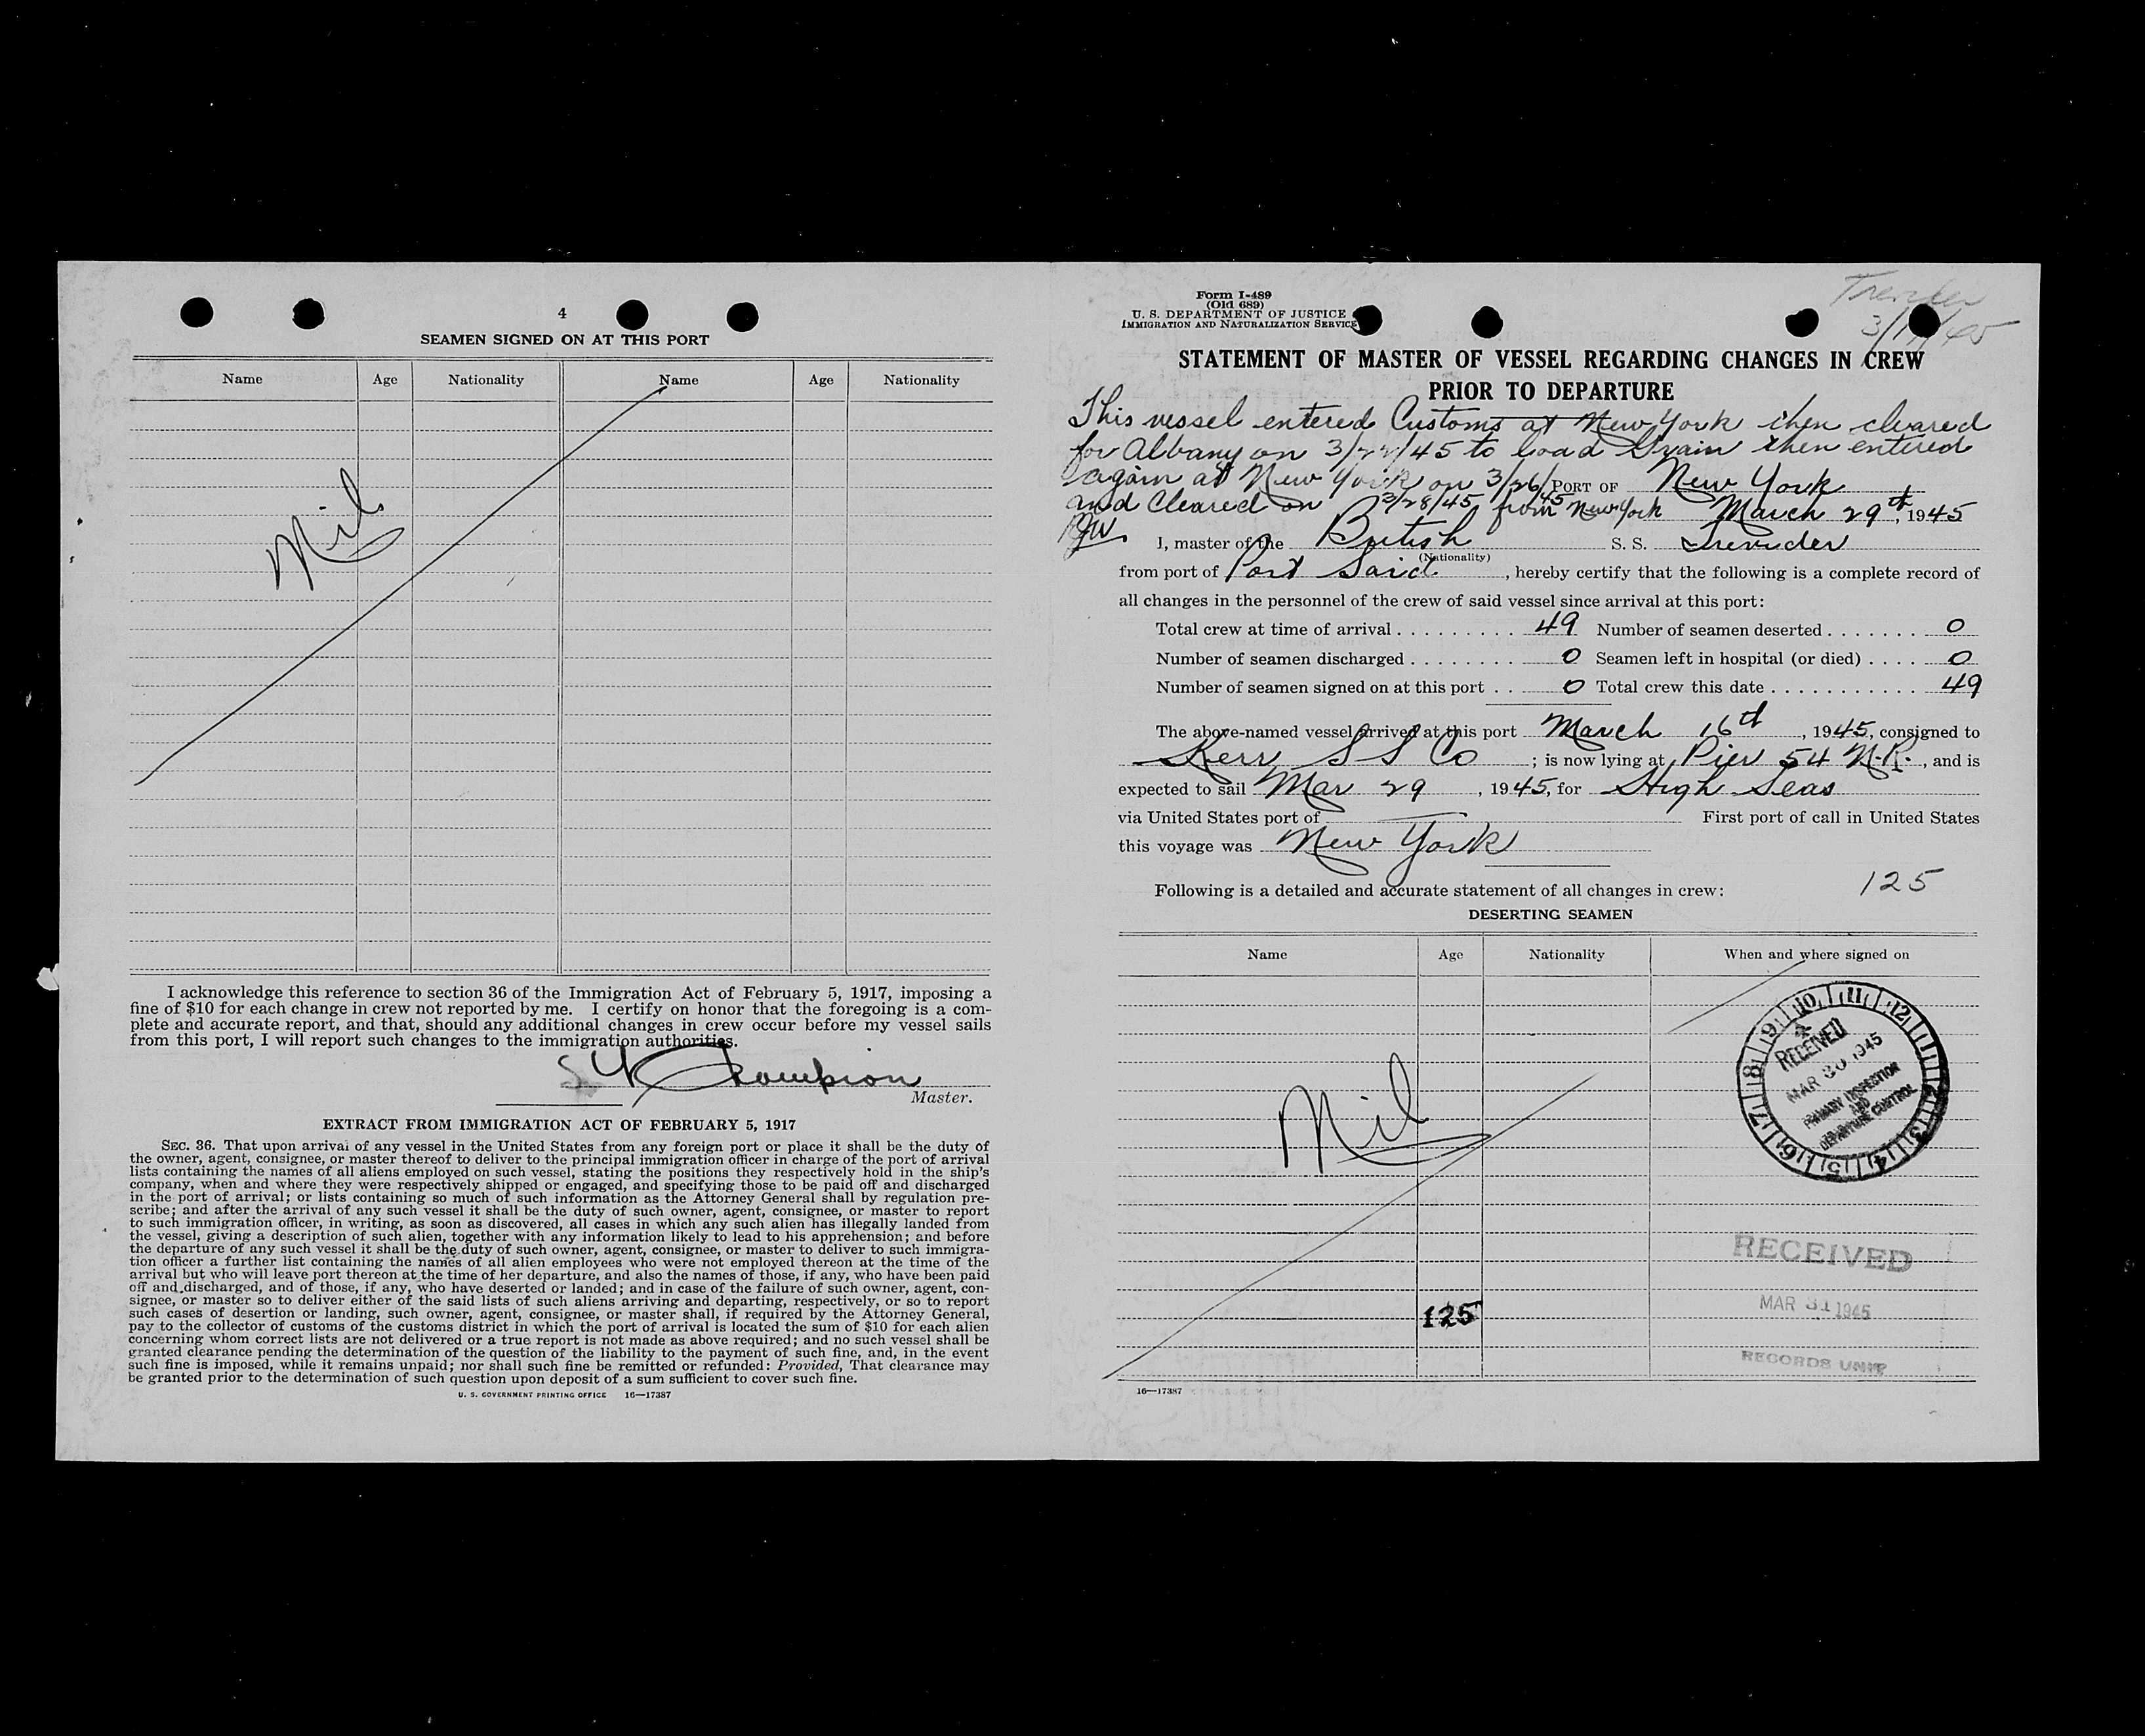 4
SEAMEN SIGNED ON AT THIS PORT
Name Age Nationality Name Age Nationality
Nil
I acknowledge this reference to section 36 of the Immigration Act of February 5, 1917, imposing a
fine of $10 for each change in crew not reported by me. I certify on honor that the foregoing is a com-
plete and accurate report, and that, should any additional changes in crew occur before my vessel sails
from this port, I will report such changes to the immigration authorities.
Champion
Master.
EXTRACT FROM IMMIGRATION ACT OF FEBRUARY 5, 1917
SEC. 36. That upon arrival of any vessel in the United States from any foreign port or place it shall be the duty of
the owner, agent, consignee, or master thereof to deliver to the principal immigration officer in charge of the port of arrival
lists containing the names of all aliens employed on such vessel, stating the positions they respectively hold in the ship's
company, when and where they were respectively shipped or engaged, and specifying those to be paid off and discharged
in the port of arrival; or lists containing so much of such information as the Attorney General shall by regulation pre-
scribe; and after the arrival of any such vessel it shall be the duty of such owner, agent, consignee, or master to report
to such immigration officer, in writing, as soon as discovered, all cases in which any such alien has illegally landed from
the vessel, giving a description of such alien, together with any information likely to lead to his apprehension; and before
the departure of any such vessel it shall be the duty of such owner, agent, consignee, or master to deliver to such immigra-
tion officer a further list containing the names of all alien employees who were not employed thereon at the time of the
arrival but who will leave port thereon at the time of her departure, and also the names of those, if any, who have been paid
off and discharged, and of those, if any, who have deserted or landed; and in case of the failure of such owner, agent, con-
signee, or master so to deliver either of the said lists of such aliens arriving and departing, respectively, or so to report
such cases of desertion or landing, such owner, agent, consignee, or master shall, if required by the Attorney General,
pay to the collector of customs of the customs district in which the port of arrival is located the sum of $10 for each alien
concerning whom correct lists are not delivered or a true report is not made as above required; and no such vessel shall be
granted clearance pending the determination of the question of the liability to the payment of such fine, and, in the event
such fine is imposed, while it remains unpaid; nor shall such fine be remitted or refunded: Provided, That clearance may
be granted prior to the determination of such question upon deposit of a sum sufficient to cover such fine.
U. S. GOVERNMENT PRINTING OFFICE 16—17387
Form I-489
(Old 689)
U. S. DEPARTMENT OF JUSTICE
IMMIGRATION AND NATURALIZATION SERVICE
STATEMENT OF MASTER OF VESSEL REGARDING CHANGES IN CREW
PRIOR TO DEPARTURE
This vessel entered Customs at New York then cleared
for Albany on 3/22/45 to load Grain then entered
again at New York on 3/26/45 PORT OF New York
and Cleared on 3/28/45 from New York March 29th, 1945
I, master of the British S. S. Trevider
(Nationality)
from port of Port Said, hereby certify that the following is a complete record of
all changes in the personnel of the crew of said vessel since arrival at this port:
Total crew at time of arrival . . . . . . . . . 49 Number of seamen deserted . . . . . . . 0
Number of seamen discharged . . . . . . . . 0 Seamen left in hospital (or died) . . . . 0
Number of seamen signed on at this port . . 0 Total crew this date . . . . . . . . . . . 49
The above-named vessel arrived at this port March 16th, 1945, consigned to
Kerr S S Co ; is now lying at Pier 54 N.R., and is
expected to sail Mar 29, 1945, for High Seas
via United States port of — First port of call in United States
this voyage was New York
Following is a detailed and accurate statement of all changes in crew: 125
DESERTING SEAMEN
Name Age Nationality When and where signed on
Nil
9 10 11 12 1 2 3 4 5 6 7 8
RECEIVED
MAR 30 1945
PRIMARY INSPECTION
AND
DEPARTURE CONTROL
RECEIVED
MAR 31 1945
125
RECORDS UNIT
16—17387